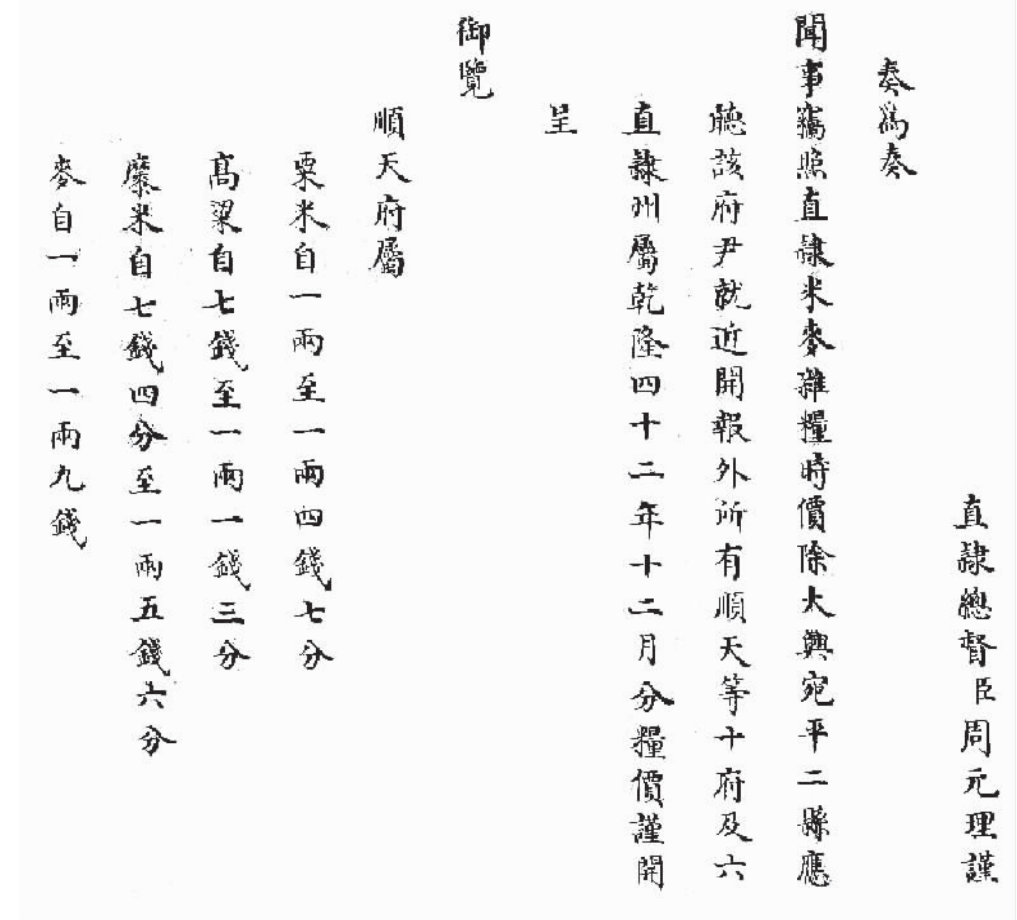 直隸總督臣周元理謹
奏爲奏
聞事竊照直隸米麥雜糧時價除大興宛平二縣應
聽該府尹就近開報外所有順天等十府及六
直隸州屬乾隆四十二年十二月分糧價謹開
呈
御覽
順天府屬
粟米自一兩至一兩四錢七分
高粱自七錢至一兩一錢三分
糜米自七錢四分至一兩五錢六分
麥自一兩至一兩九錢